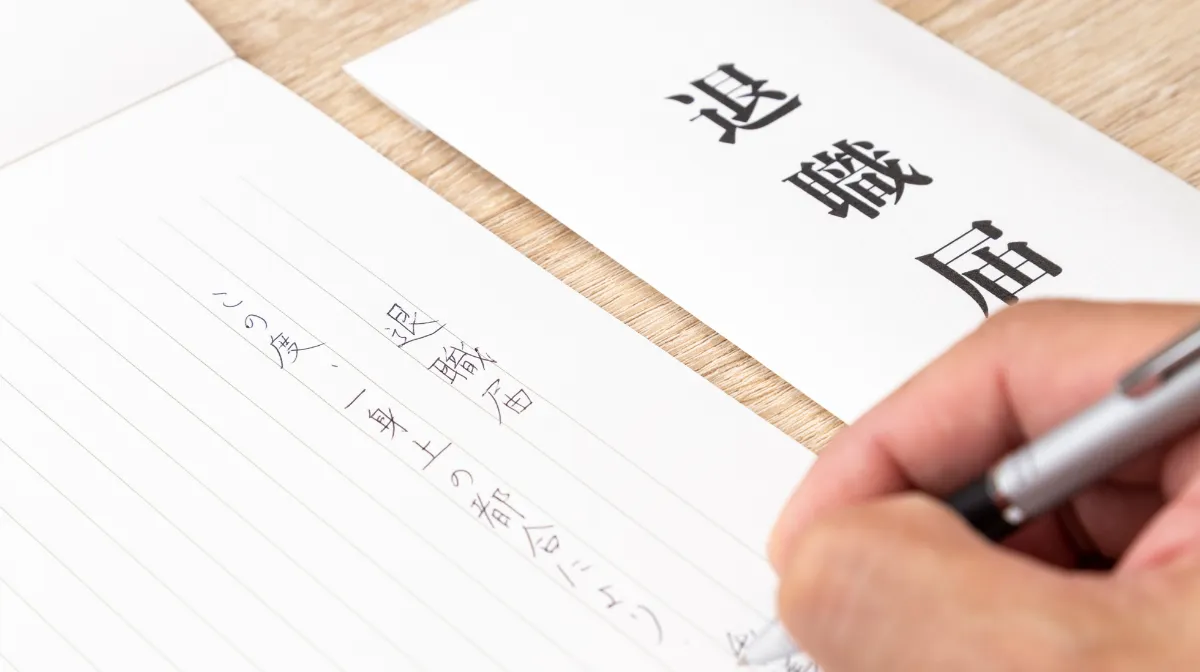 退職届
退職届
この度、一身上の都合により